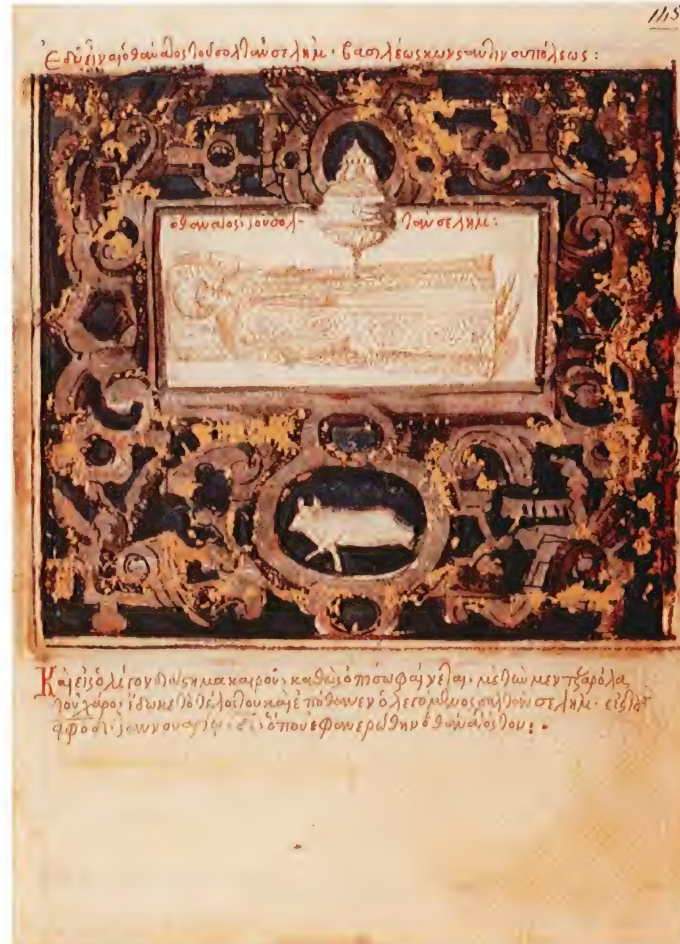 115
Ἐδῶ εἶναι ὁ θάνατος τοῦ σολτὰν σελήμ · βασιλέως κωνσταντινουπόλεως :
ὁ θάνατος τοῦ σολ- τὰν σελήμ :
Καὶ εἰς ὀλίγον διάστημα καιροῦ, καθὼς ὀπίσω φαίνεται, μὲ τὼν μεντζαρόλα
τοῦ χάρου ἔδωκε τὸ τέλος του καὶ ἐπόθανεν ὁ λεγόμενος σολτὰν σελήμ · εἰς τὰ
ἰαννουαρίω ὁποῦ ἐφανερώθην ὁ θάνατός του :·